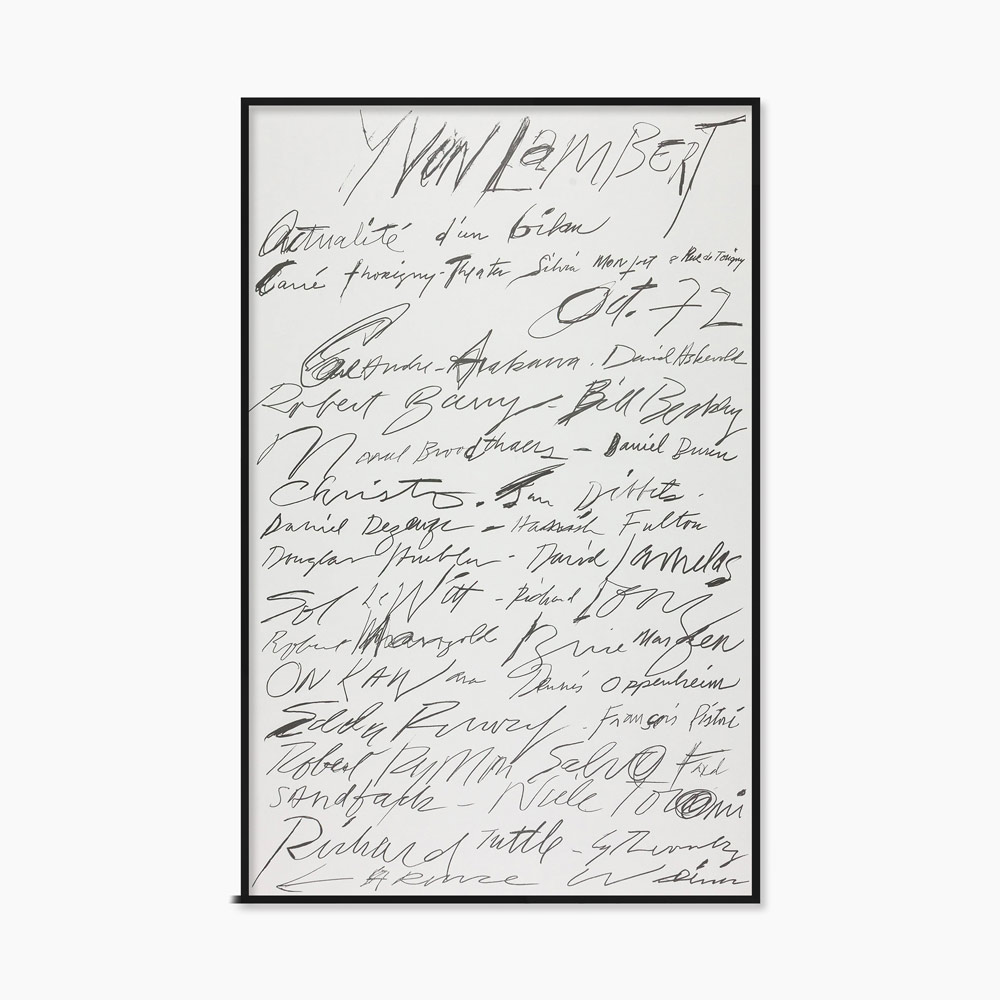 YVON LAMBERT
Actualité d'un bilan
Carré Thorigny-Theater Silvia Monfort 8 Rue de Torigny
Oct. 72
Carl Andre - Arakawa . David Askevold
Robert Barry - Bill Beckley
Marcel Broodthaers - Daniel Buren
Christo . Jan Dibbets .
Daniel Dezeuze - Hamish Fulton
Douglas Huebler - David Lamelas
Sol LeWitt - Richard Long
Robert Mangold Brice Marden
ON KAWara Dennis Oppenheim
Edda Renouf . François Ristori
Robert Ryman Salvo Fred
SAndback - Niele Toroni
Richard Tuttle - Cy Twombly
LAWRENCE Weiner